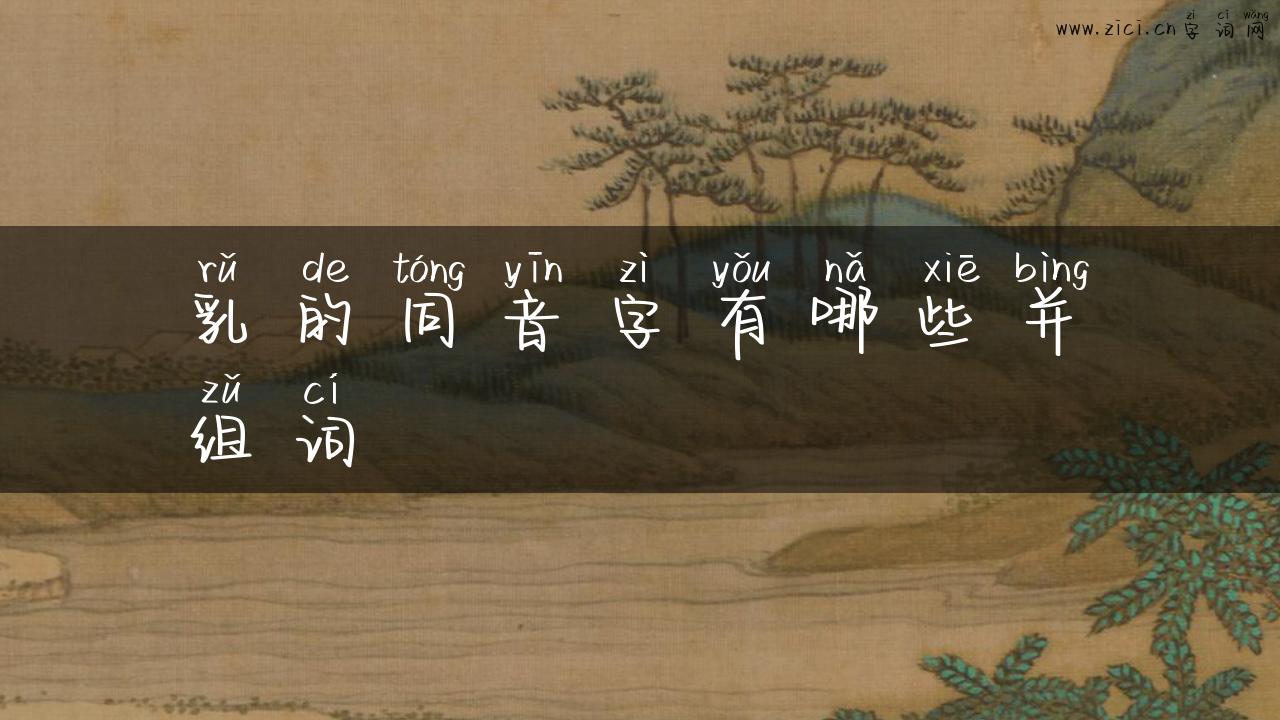 zì cí wǎng
www.zici.cn 字词网
rǔ de tóng yīn zì yǒu nǎ xiē bìng
乳的同音字有哪些并
zǔ cí
组词